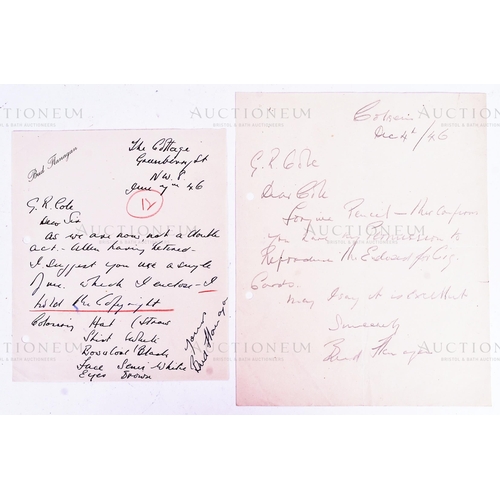 Bud Flanagan
The Cottage
Greenberry St
N.W.8
June 7th 46
17
G.R. Cole
Dear Sir
As we are now not a double
act - Allen having retired -
I suggest you use a single
of me. which I enclose - I
hold the Copyright
Colouring Hat (Straw
Shirt White
Black
Face Semi White
Eyes Brown
Yours
Bud Flanagan
Dec 4th/46
G.R. Cole
Dear Cole
Forgive Pencil - this confirms
you permission to
Reproduce the for Cig.
Cards.
Sincerely
Bud Flanagan
AUCTIONEUM
BRISTOL & BATH AUCTIONEERS